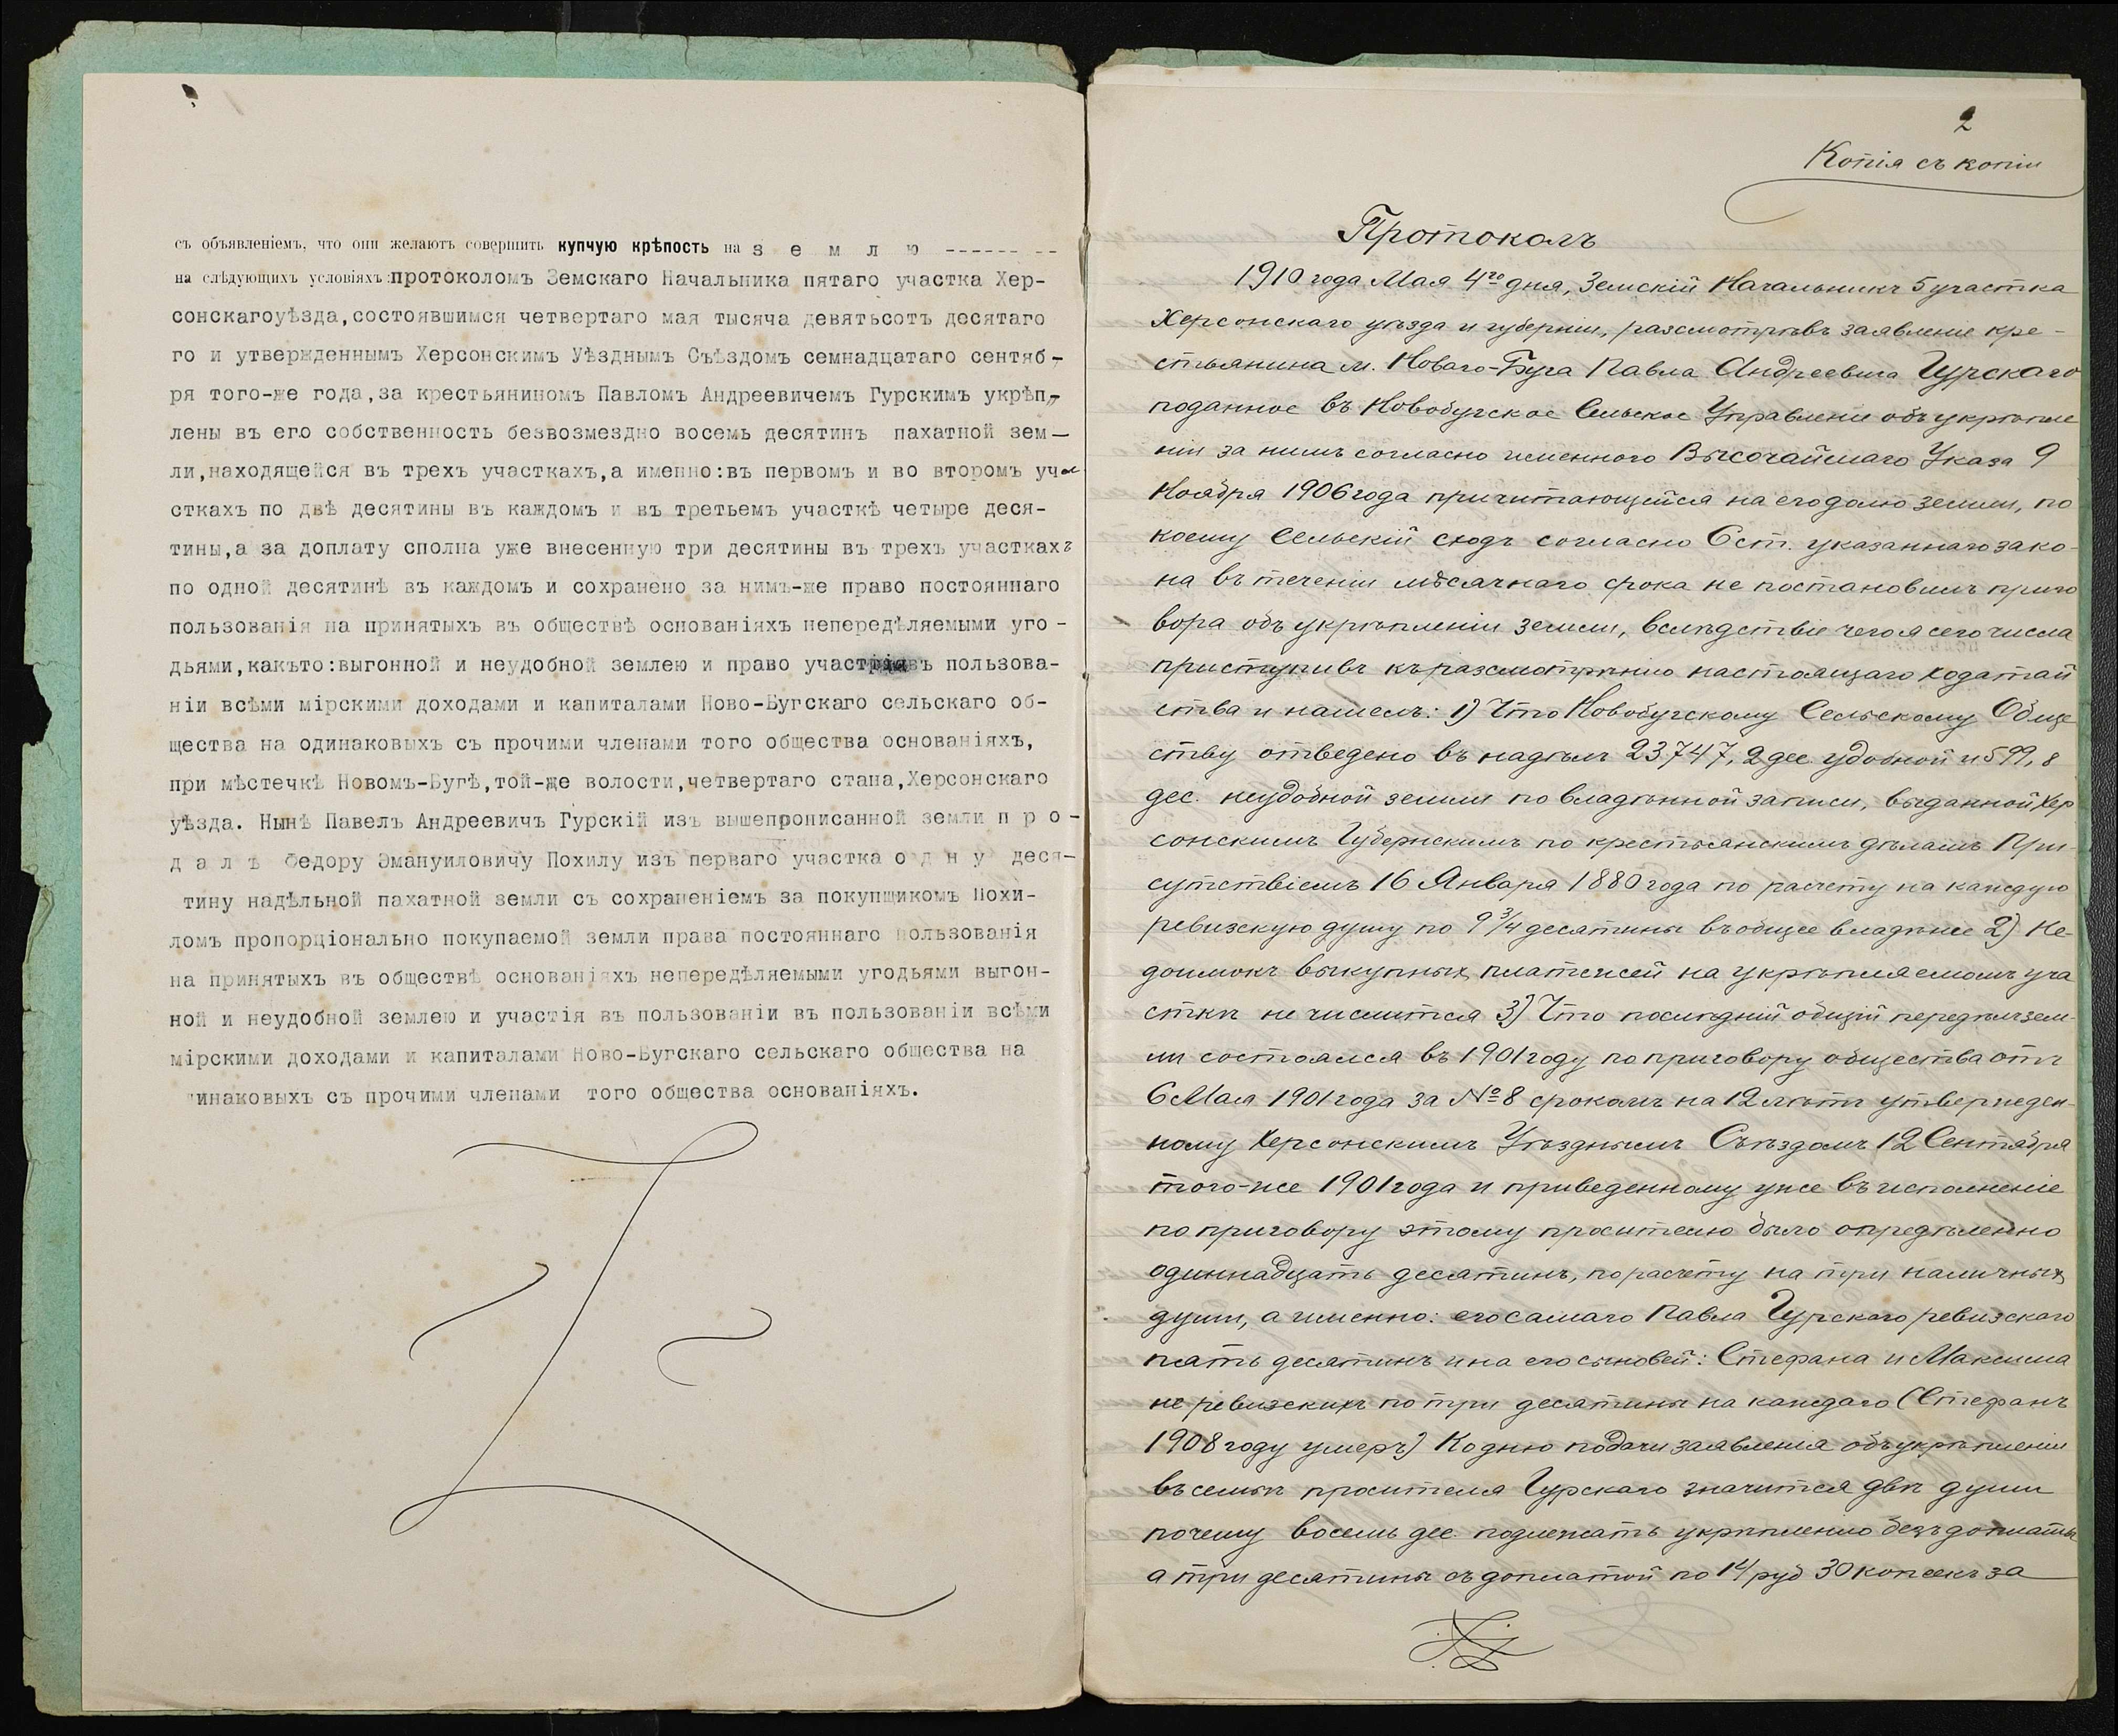 съ объявленіемъ, что они желаютъ совершить купчую крѣпость на з е м л ю --------
на слѣдующихъ условіяхъ:протоколомъ Земскаго Начальника пятаго участка Хер-
сонскагоуѣзда,состоявшимся четвертаго мая тысяча девятьсотъ десятаго
го и утвержденнымъ Херсонскимъ Уѣзднымъ Съѣздомъ семнадцатаго сентяб-
ря того-же года,за крестьяниномъ Павломъ Андреевичемъ Гурскимъ укрѣп-
лены въ его собственность безвозмездно восемь десятинъ пахатной зем-
ли,находящейся въ трехъ участкахъ,а именно:въ первомъ и во второмъ уча
сткахъ по двѣ десятины въ каждомъ и въ третьемъ участкѣ четыре деся-
тины,а за доплату сполна уже внесенную три десятины въ трехъ участкахъ
по одной десятинѣ въ каждомъ и сохранено за нимъ-же право постояннаго
пользованія на принятыхъ въ обществѣ основаніяхъ непередѣляемыми уго-
дьями,какъто:выгонной и неудобной землею и право участія въ пользова-
ніи всѣми мірскими доходами и капиталами Ново-Бугскаго сельскаго об-
щества на одинаковыхъ съ прочими членами того общества основаніяхъ,
при мѣстечкѣ Новомъ-Бугѣ,той-же волости,четвертаго стана,Херсонскаго
уѣзда. Нынѣ Павелъ Андреевичъ Гурскій изъ вышепрописанной земли п р о -
д а л ъ Федору Эмануиловичу Похилу изъ перваго участка о д н у деся-
тину надѣльной пахатной земли съ сохраненіемъ за покупщикомъ Похи-
ломъ пропорціонально покупаемой земли права постояннаго пользованія
на принятыхъ въ обществѣ основаніяхъ непередѣляемыми угодьями выгон-
ной и неудобной землею и участія въ пользованіи въ пользованіи всѣми
мірскими доходами и капиталами Ново-Бугскаго сельскаго общества на
инаковыхъ съ прочими членами того общества основаніяхъ.
2
Копія съ копіи
Протоколъ
1910 года Мая 4го дня, Земскій Начальникъ 5 участка
Херсонскаго уѣзда и губерніи, разсмотрѣвъ заявленіе кре-
стьянина м. Новаго-Буга Павла Андреевича Гурскаго
поданное въ Новобугское Сельское Управленіе объ укрѣпле
ніи за нимъ согласно именного Высочайшаго Указа 9
Ноября 1906 года причитающейся на его долю земли, по
коему Сельскій сходъ согласно 6 ст. указаннаго зако-
на въ теченіи мѣсячнаго срока не постановилъ приго
вора объ укрѣпленіи земли, вслѣдствіе чего я сего числа
приступивъ къ разсмотрѣнію настоящаго ходатай
ства и нашелъ: 1) Что Новобугскому Сельскому Обще
ству отведено въ надѣлъ 23747,2 дес. удобной и 599,8
дес. неудобной земли по владѣнной записи, выданной Хер
сонскимъ Губернскимъ по крестьянскимъ дѣламъ При-
сутствіемъ 16 Января 1880 года по расчету на каждую
ревизскую душу по 9 3/4 десятины въ общее владѣніе 2) Не-
доимокъ выкупныхъ платежей на укрѣпляемомъ уча
сткѣ не числится 3) Что послѣдній общій передѣлъ зем-
ли состоялся въ 1901 году по приговору общества отъ
6 Мая 1901 года за № 8 срокомъ на 12 лѣтъ утвержден-
ному Херсонскимъ Уѣзднымъ Съѣздомъ 12 Сентября
того-же 1901 года и приведенному уже въ исполненіе
по приговору этому просителю было опредѣленно
одиннадцать десятинъ, по расчету на три наличныхъ
души, а именно: его самаго Павла Гурскаго ревизскаго
пять десятинъ и на его сыновей: Стефана и Максима
не ревизскихъ по три десятины на каждаго (Стефанъ
1908 году умеръ) Ко дню подачи заявленія объ укрѣпленіи
въ семьѣ просителя Гурскаго значится двѣ души
почему восемь дес. подлежатъ укрѣпленію безъ доплаты
а три десятины съ доплатой по 14 руб 30 копѣекъ за